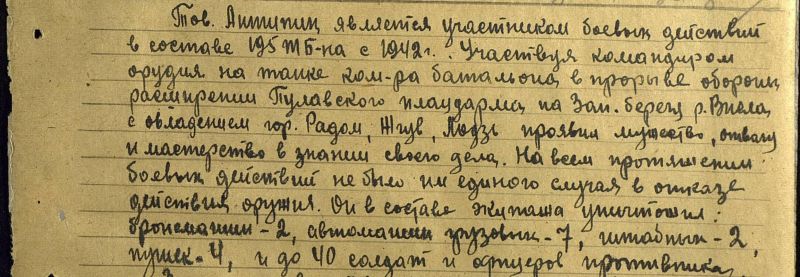 Тов. Антипин является участником боевых действий
в составе 195 ТБ-на с 1942 г. Участвуя командиром
орудия на танке ком-ра батальона в прорыве обороны
расширении Пулавского плацдарма на Зап. берегу р. Висла
с овладением гор. Радом, Жгув, Лодзь проявил мужество, отвагу
и мастерство в знании своего дела. На всем протяжении
боевых действий не было ни единого случая в отказе
действия оружия. Он в составе экипажа уничтожил:
бронемашин - 2, автомашин грузовых - 7, штабных - 2,
пушек - 4, и до 40 солдат и офицеров противника